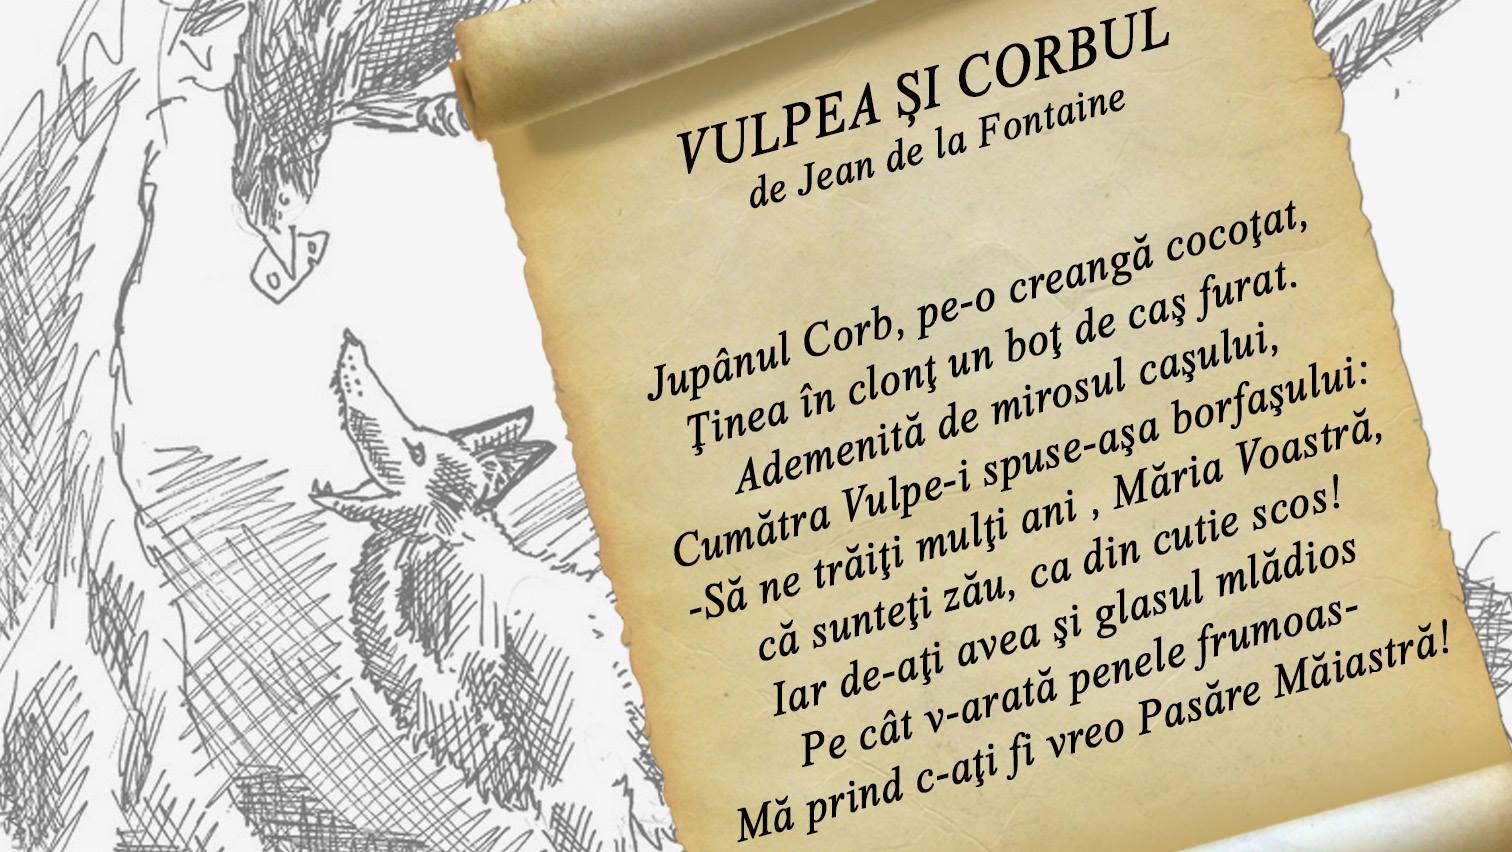 VULPEA ŞI CORBUL
de Jean de la Fontaine
Jupânul Corb, pe-o creangă cocoţat,
Ţinea în clonţ un boţ de caş furat.
Ademenită de mirosul caşului,
Cumătra Vulpe-i spuse-aşa borfaşului:
-Să ne trăiţi mulţi ani , Măria Voastră,
că sunteţi zău, ca din cutie scos!
Iar de-aţi avea şi glasul mlădios
Pe cât v-arată penele frumoas-
Mă prind c-aţi fi vreo Pasăre Măiastră!